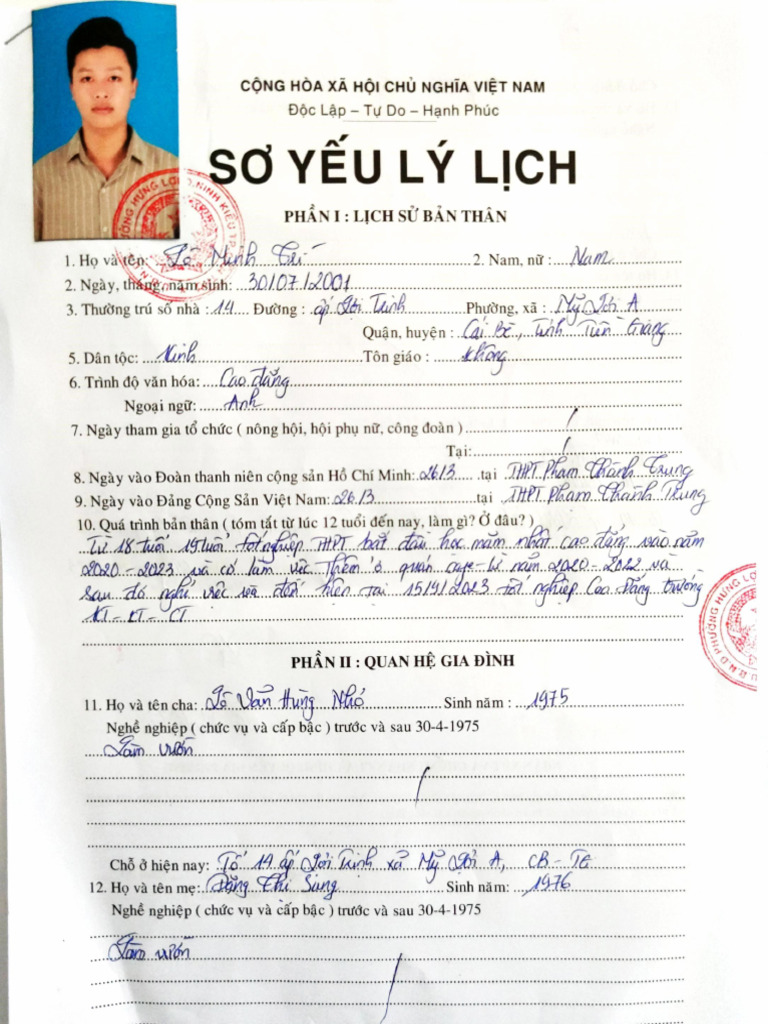 CỘNG HÒA XÃ HỘI CHỦ NGHĨA VIỆT NAM
Độc Lập – Tự Do – Hạnh Phúc
SƠ YẾU LÝ LỊCH
PHẦN I : LỊCH SỬ BẢN THÂN
1. Họ và tên: Minh Trí 2. Nam, nữ : Nam
2. Ngày, tháng, năm sinh: 30/07/2001
3. Thường trú số nhà : 14 Đường : ấp Lợi Trinh Phường, xã : Mỹ Lợi A
Quận, huyện : Cái Bè, Tỉnh Tiền Giang
5. Dân tộc: Kinh Tôn giáo : không
6. Trình độ văn hóa: Cao đẳng
Ngoại ngữ: Anh
7. Ngày tham gia tổ chức ( nông hội, hội phụ nữ, công đoàn ) /
Tại: /
8. Ngày vào Đoàn thanh niên cộng sản Hồ Chí Minh: 26/3 tại THPT Phạm Thành Trung
9. Ngày vào Đảng Cộng Sản Việt Nam: 26/3 tại THPT Phạm Thành Trung
10. Quá trình bản thân ( tóm tắt từ lúc 12 tuổi đến nay, làm gì? Ở đâu? )
Từ 18 tuổi 19 tuổi tốt nghiệp THPT bắt đầu học năm nhất cao đẳng vào năm
2020-2023 và có làm việc thêm ở quán năm 2020-2022 và
sau đó nghỉ việc và đến hiện tại 15/9/2023 tốt nghiệp Cao Đẳng trường
KT-KT-CT
PHẦN II : QUAN HỆ GIA ĐÌNH
11. Họ và tên cha: Văn Hùng Nhỏ Sinh năm : 1975
Nghề nghiệp ( chức vụ và cấp bậc ) trước và sau 30-4-1975
Làm vườn
/
Chỗ ở hiện nay: Tổ 14 ấp Lợi Trinh xã Mỹ Lợi A, CB-TG
12. Họ và tên mẹ: Đặng Thị Sinh năm: 1976
Nghề nghiệp ( chức vụ và cấp bậc ) trước và sau 30-4-1975
Làm vườn
/